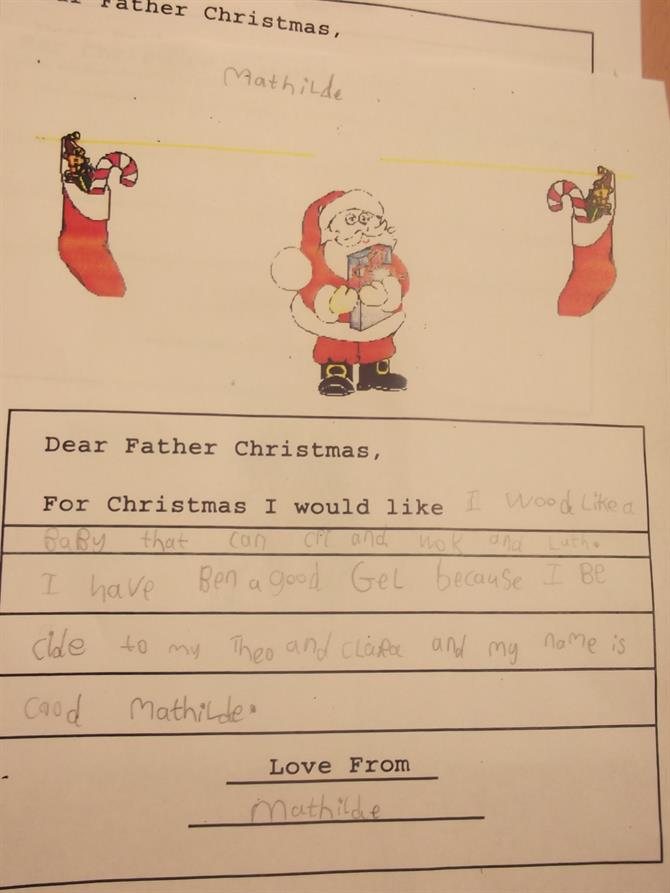 Father Christmas,
Mathilde
Dear Father Christmas,
For Christmas I would like I Wood Like a
BaBy that can cri and wok and Luth.
I have Ben a good GeL because I Be
cide to my Theo and CLARa and my name is
Caod Mathilde.
Love From
Mathilde